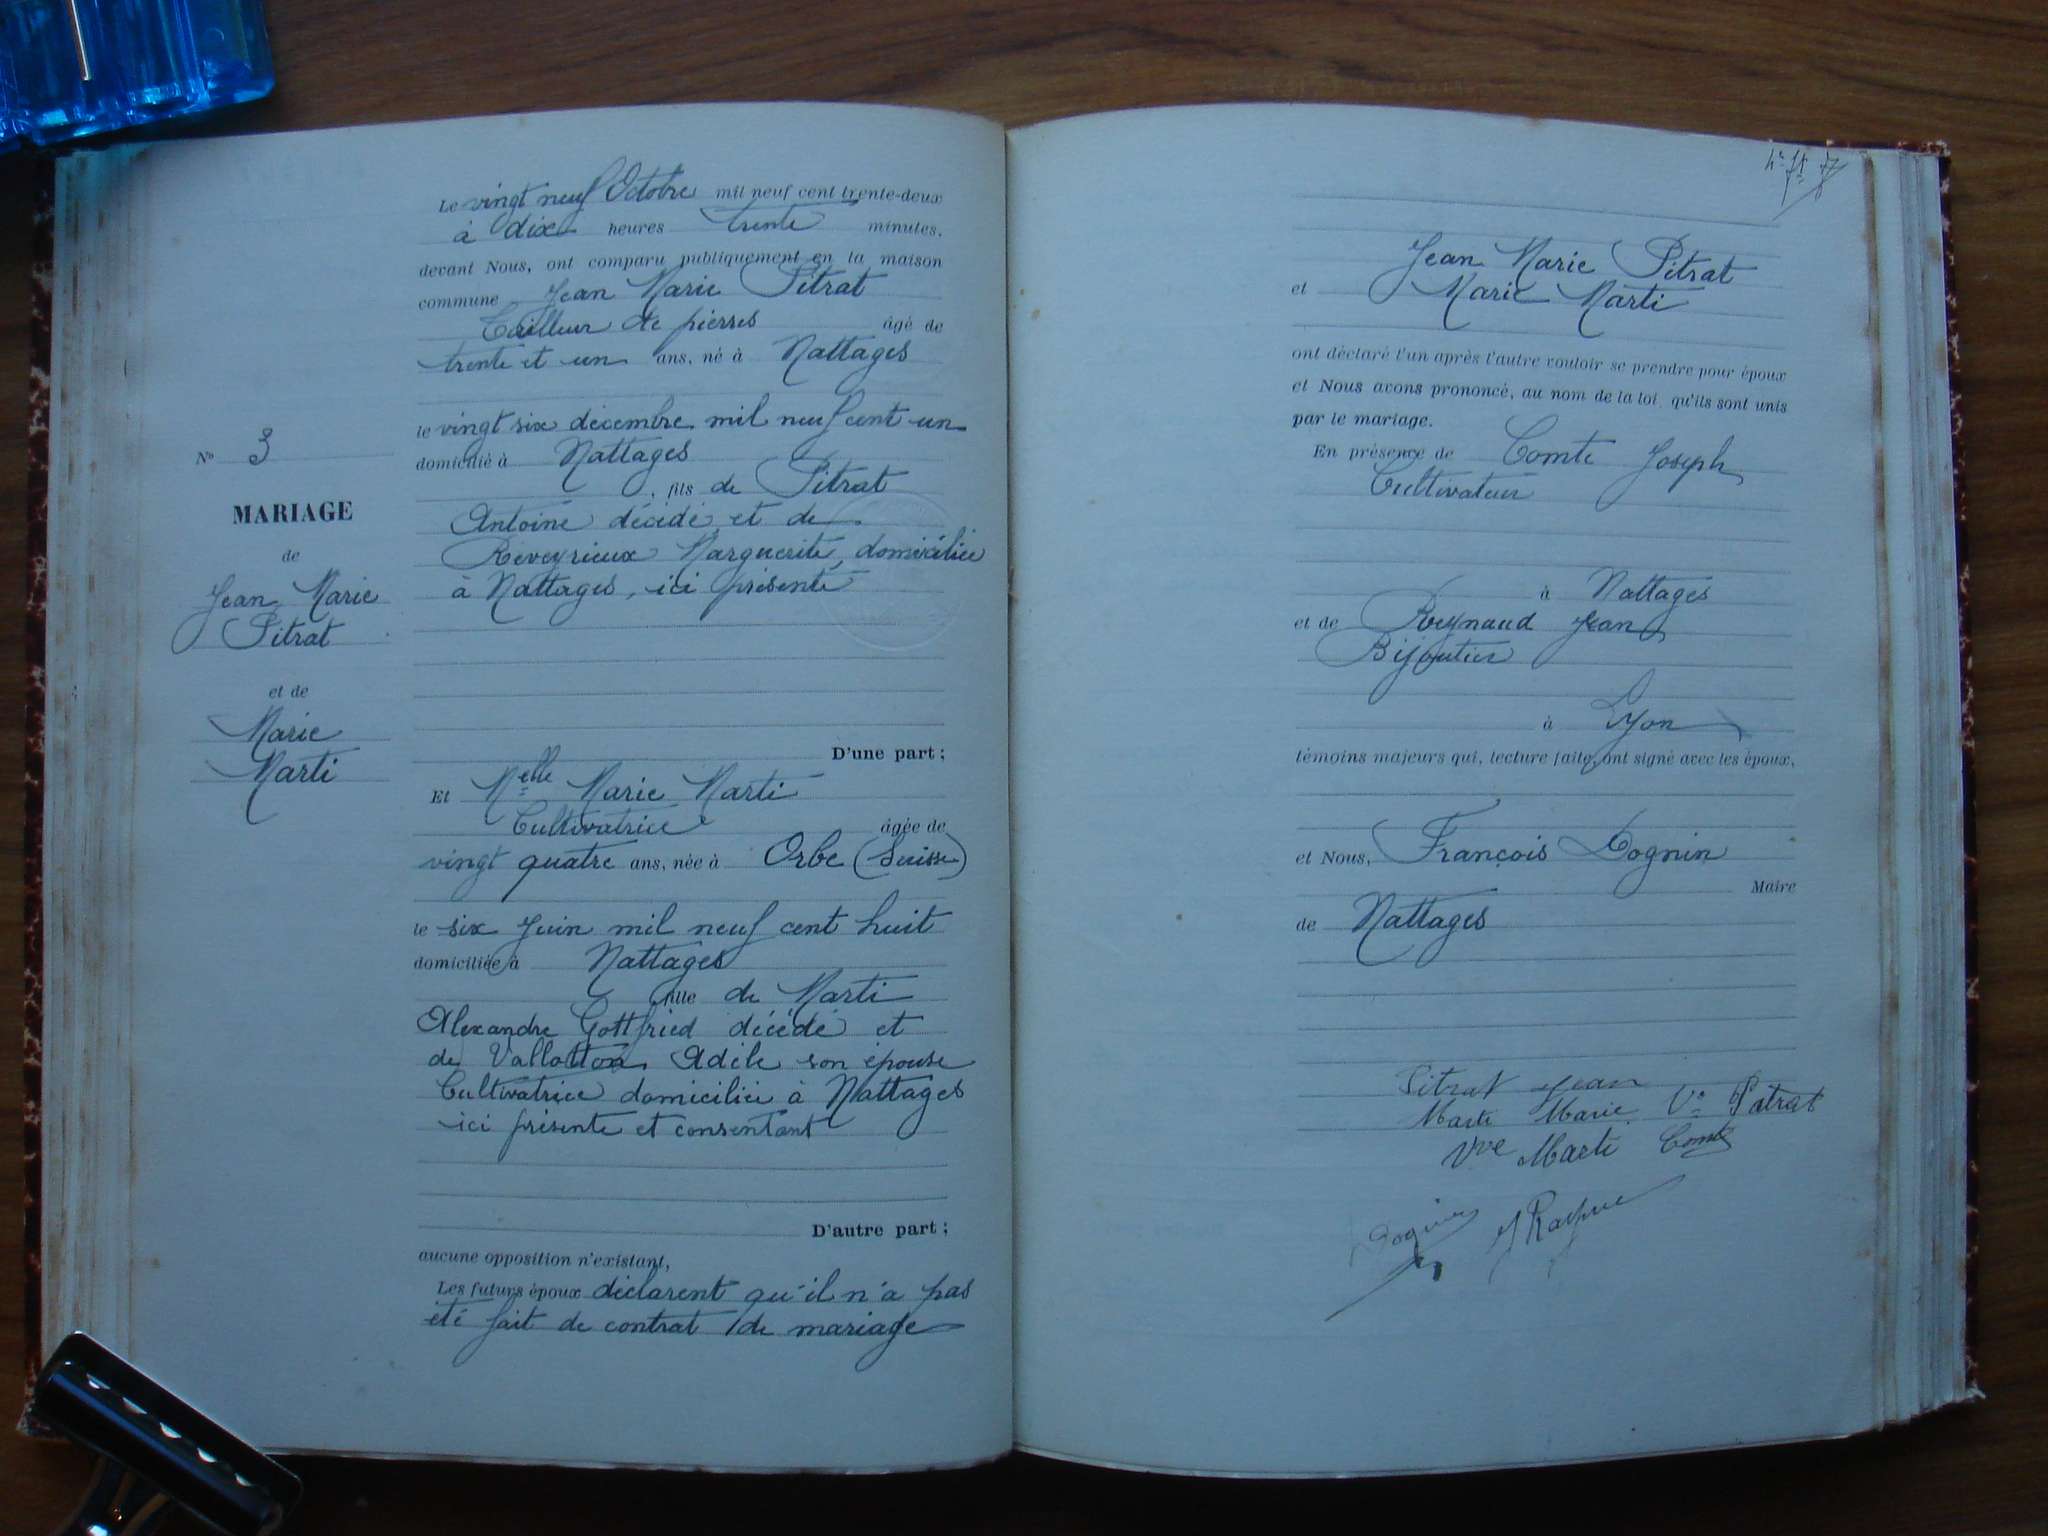 Le vingt neuf Octobre mil neuf cent trente-deux
à dix heures trente minutes,
devant Nous, ont comparu publiquement en la maison
commune Jean Marie Pitrat
Tailleur de pierres âgé de
trente et un ans, né à Nattages
le vingt six décembre mil neuf cent un
domicilié à Nattages
, fils de Pitrat
Antoine décédé et de
Reveyrieux Marguerite, domiciliée
à Nattages, ici présente
D'une part;
Et Melle Marie Marti
Cultivatrice âgée de
vingt quatre ans, née à Orbe (Suisse)
le six Juin mil neuf cent huit
domiciliée à Nattages
fille de Marti
Alexandre Gottfried décédé et
de Vallotton Adèle son épouse
Cultivatrice domiciliée à Nattages
ici présente et consentant
D'autre part;
aucune opposition n'existant,
Les futurs époux déclarent qu'il n'a pas
été fait de contrat de mariage
No 3
MARIAGE
de
Jean Marie
Pitrat
et de
Marie
Marti
Jean Marie Pitrat
et Marie Marti
ont déclaré l'un après l'autre vouloir se prendre pour époux
et Nous avons prononcé, au nom de la loi qu'ils sont unis
par le mariage.
En présence de Comte Joseph
Cultivateur
à Nattages
et de Reynaud Jean
Bijoutier
à Lyon
témoins majeurs qui, lecture faite, ont signé avec les époux,
et Nous, François Dognin
Maire
de Nattages
Pitrat Jean
Marti Marie Ve Pitrat
Vve Marti Comte
Dognin